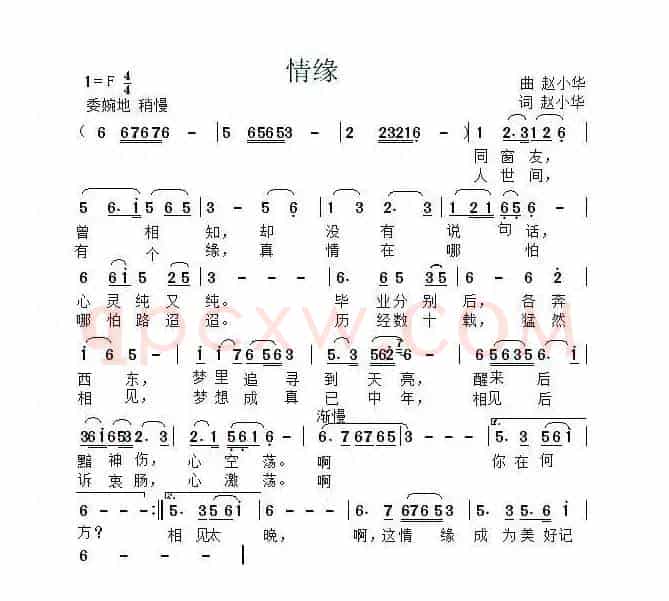 情缘
1=F 4/4
曲 赵小华
委婉地 稍慢
词 赵小华
( 6 67676 - | 5 65653 - | 2 23216 - ) | 1 2·3 1 2 6 |
同窗友，
人世间，
5 6·1 5 6 5 | 3 - 5 5 6 | 1 3 2· 3 | 1 2 1 6 5 - |
曾 相 知，却 没 有 说 句 话，
有 个 缘，真 情 在 哪 怕
6 6 1 5 2 5 | 6 - - - | 6· 1 6 5 3 5 | 6 - 6 2 |
心 灵纯又 纯。 毕 业分别 后，各奔
哪怕路迢 迢。 历 经数十 载，猛然
1 6 5 - | 1·1 7 6 5 6 5 | 5·3 5 6 2 7 | 6 5 6 3 5 6· |
西 东， 梦里 追 寻 到 天 亮， 醒来 后
相 见， 梦想 成 真 已 中 年， 相见 后
渐慢
3 6 1 6 5 3 2·3 | 2·1 5 6 1 - | 6· 7 6 7 6 5 | 6 - - - | 5·3 5 6 1
黯 神 伤， 心 空 荡。 啊 你 在 何
诉 衷 肠， 心 激 荡。 啊
6 - - - :|| 5·3 5 6 1 | 6 - - - | 6· 7 6 7 6 5 3 | 5·3 5· 1 |
方？ 相 见太 晚， 啊，这情 缘 成 为美 好记
6 - - - |